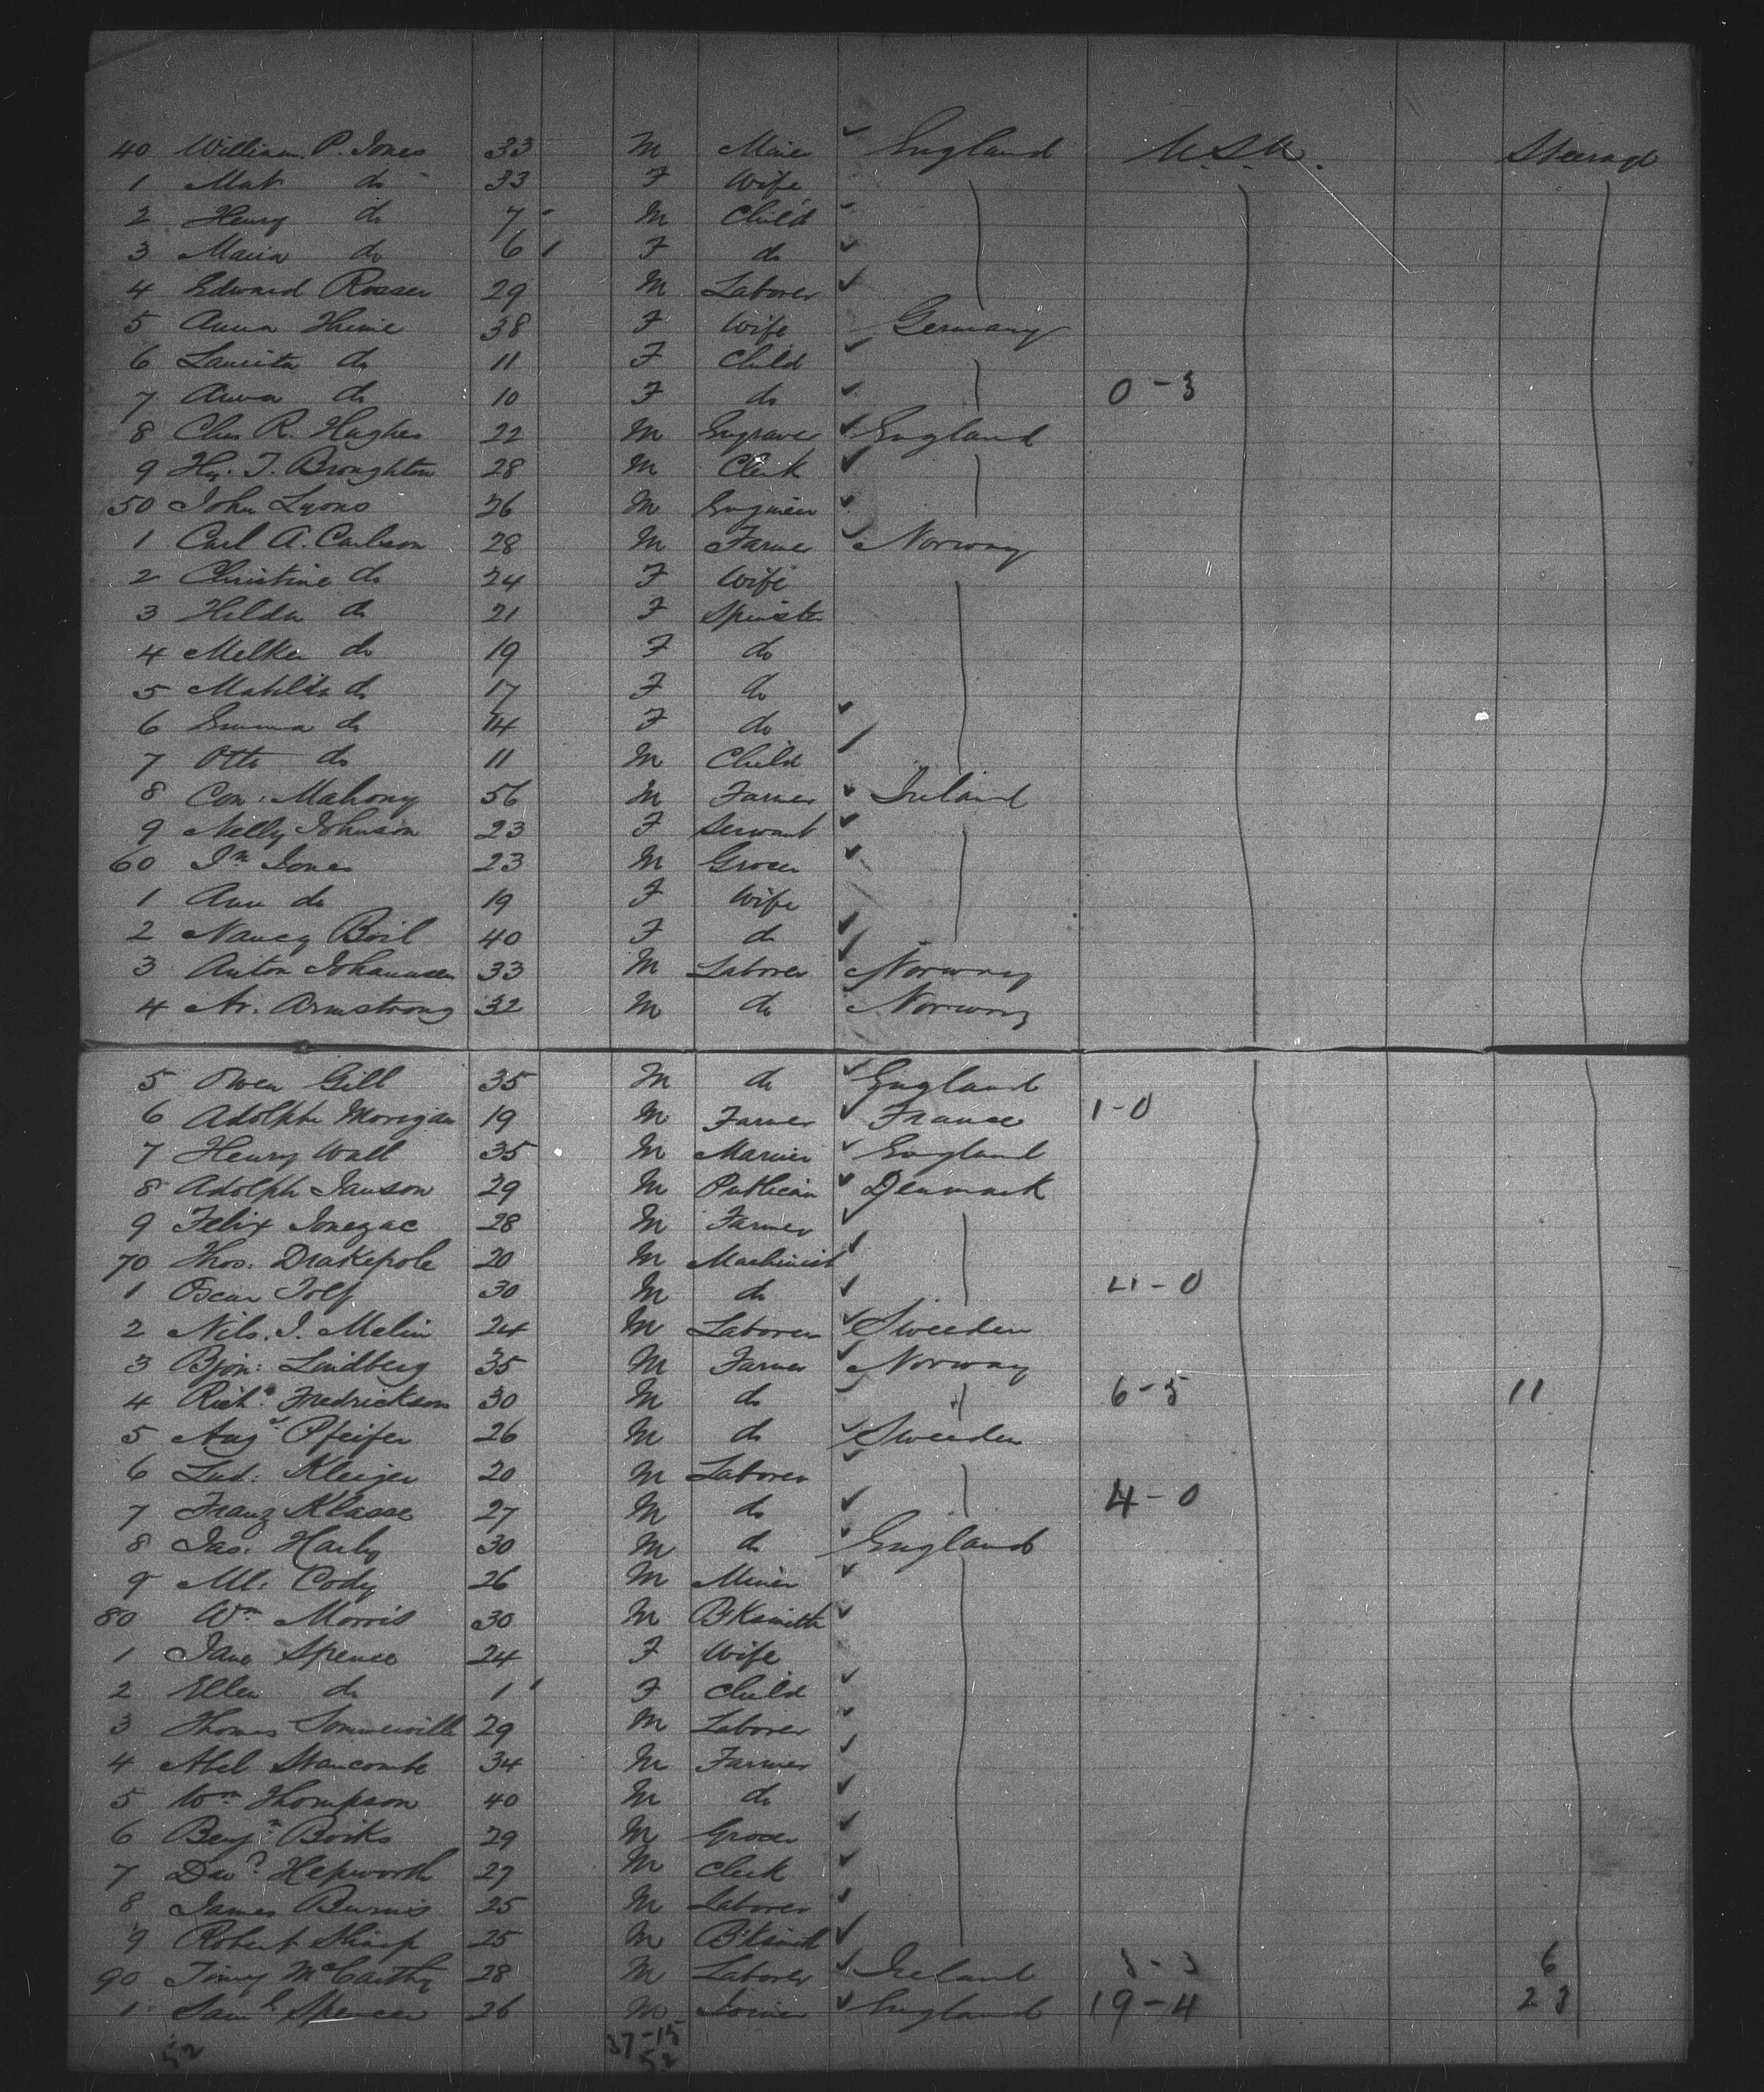 40 William P. Jones 33 M Miner England U.S.A. Steerage
1 Mat do 33 F Wife
2 Henry do 7 M Child
3 Maria do 6 F do
4 Edward Rosser 29 M Laborer
5 Anna Thime 38 F Wife Germany
6 Laurita do 11 F Child
7 Anna do 10 F do 0-3
8 Chas R. Hughes 22 M Engraver England
9 Hy. T. Broughton 28 M Clerk
50 John Lyons 26 M Engineer
1 Carl A. Carlson 28 M Farmer Norway
2 Christine do 24 F Wife
3 Hilda do 21 F Spinster
4 Melker do 19 F do
5 Matilda do 17 F do
6 Emma do 14 F do
7 Otto do 11 M Child
8 Con: Mahony 56 M Farmer Ireland
9 Nelly Johnson 23 F Servant
60 Jn Jones 23 M Grocer
1 Ann do 19 F Wife
2 Nancy Boil 40 F do
3 Anton Johannsen 33 M Laborer Norway
4 Ar. Armstrong 32 M do Norway
5 Owen Gill 35 M do England
6 Adolphe Morigan 19 M Farmer France 1-0
7 Henry Wall 35 M Mariner England
8 Adolph Janson 29 M Publican Denmark
9 Felix Jonezac 28 M Farmer
70 Thos. Drakepole 20 M Machinist
1 Oscar Tolf 30 M do 4-0
2 Nils. J. Melin 24 M Laborer Sweeden
3 Bjon: Lindberg 35 M Farmer Norway
4 Richd Fredrickson 30 M do 6-5 11
5 Augt Pfeifer 26 M do Sweeden
6 Lud: Kleijer 20 M Laborer
7 Franz Klasse 27 M do 4-0
8 Jas. Harly 30 M do England
9 Ml. Cody 26 M Miner
80 Wm Morris 30 M B'Ksmith
1 Jane Spence 24 F Wife
2 Ellen do 1 F Child
3 Thomas Sommerville 29 M Laborer
4 Abel Stancombe 34 M Farmer
5 Wm Thompson 40 M do
6 Benjn Boiks 29 M Grocer
7 Davd Hepworth 27 M Clerk
8 James Burns 25 M Laborer
9 Robert Sharp 25 M B'Ksmith
90 Timy McCarthy 28 M Laborer Ireland 3-3 6
1 Saml Spencer 26 M Joiner England 19-4 23
52 37-15
52